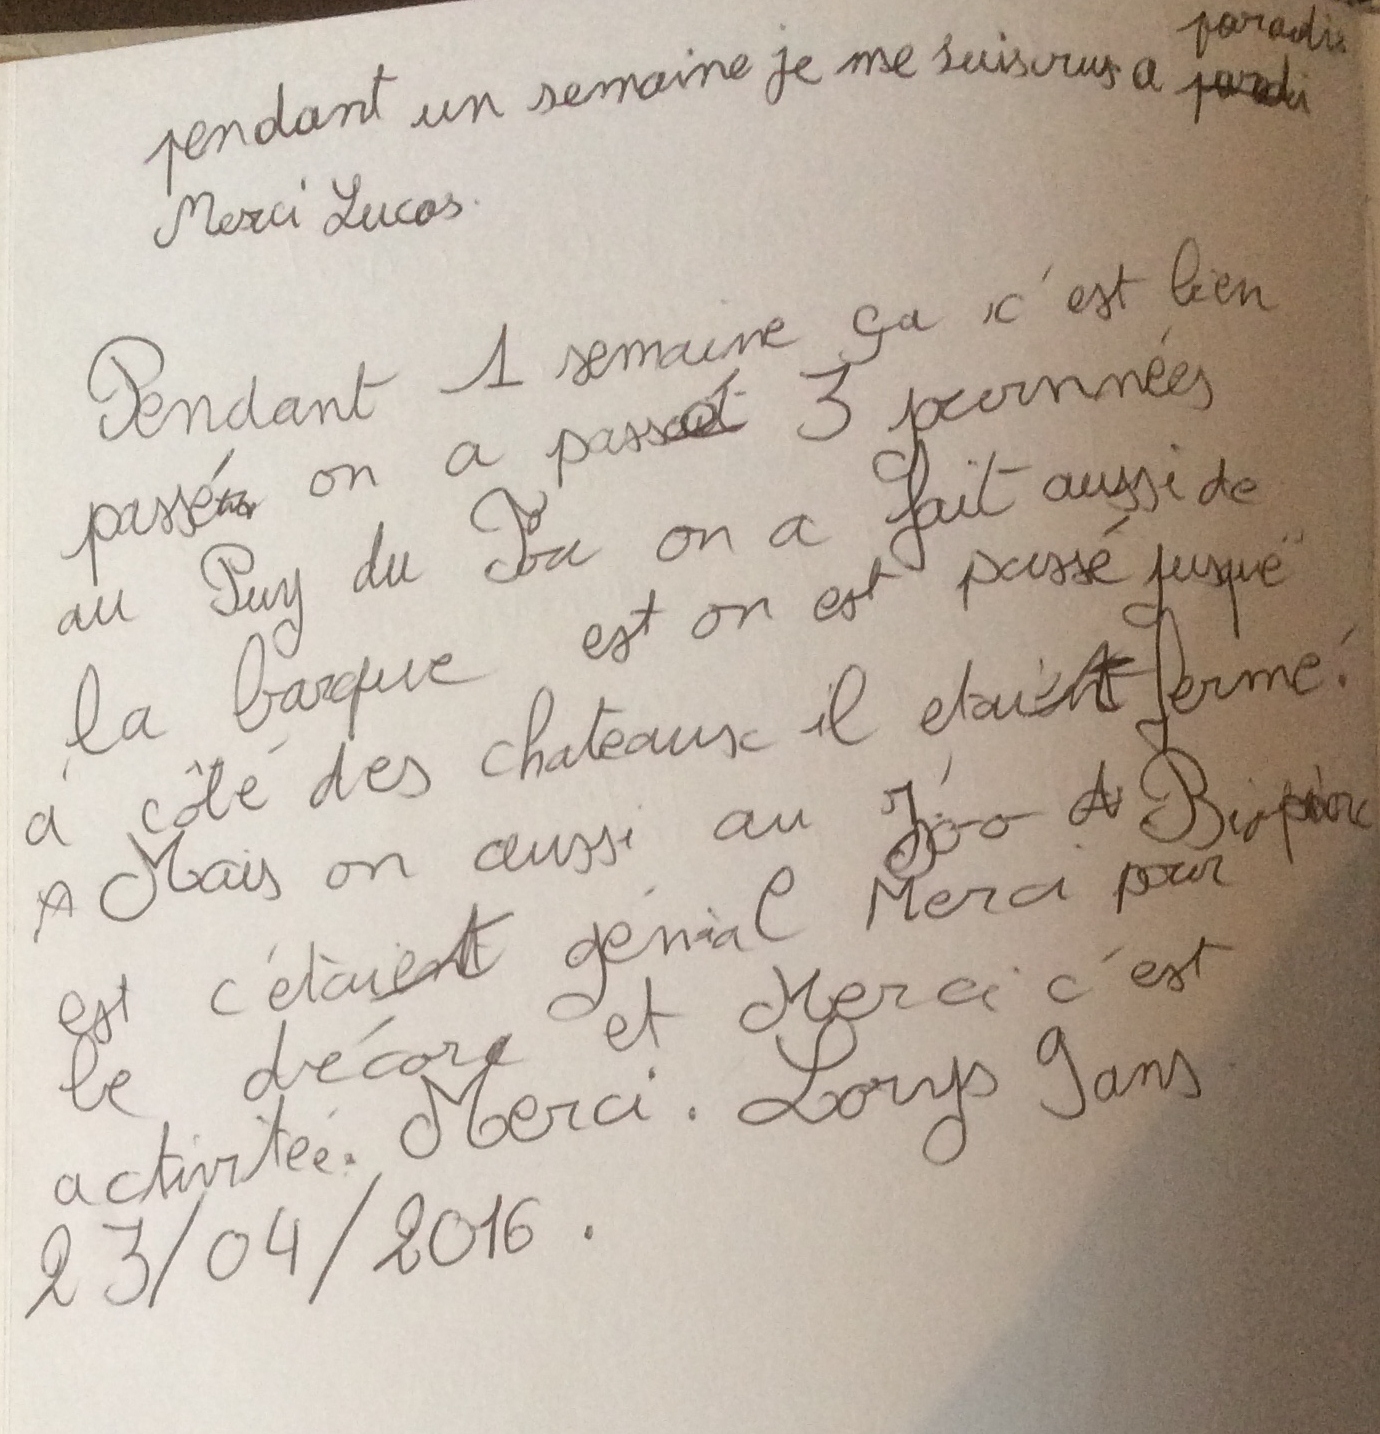 pendant un semaine je me suis crus a paradis
Merci Lucas.
Pendant 1 semaine ça c'est bien
passé on a passé 3 journnées
au Puy du Fou on a fait aussi de
la barque est on est passé jusque
á côté des chateaux il etait fermé.
Mais on aussi au Zoo Bioparc
est c'étaient génial Merci pour
le décore et Merci c'est
activitée. Merci. Lorys 9 ans
23/04/2016.